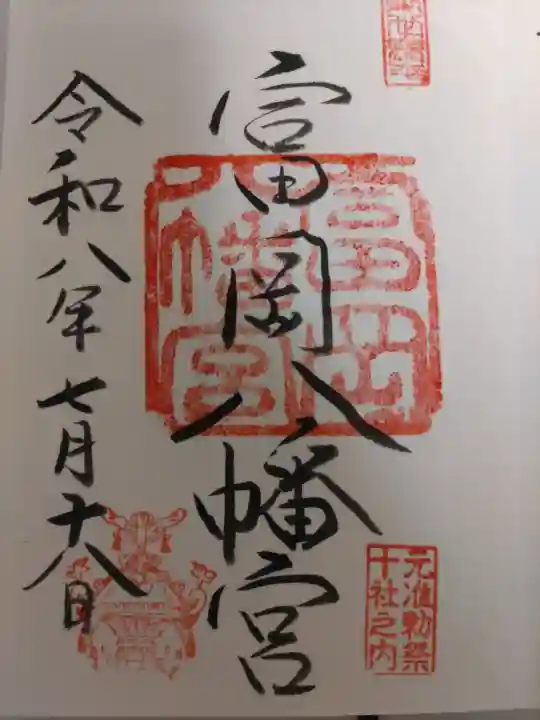 富岡八幡宮
富岡八幡宮
元准勅祭
十社之内
令和八年七月十八日